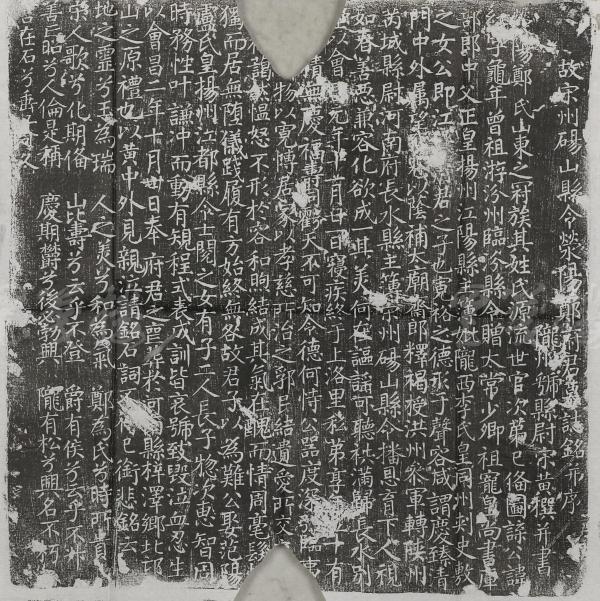 故宋州碭山縣令滎陽鄭府君墓誌銘并序
隴縣尉宗黃撰并書
陽鄭氏山東之府族其姓氏源流世官次第備圖諜公諱
字龜年曾祖游汾州臨汾縣令贈大常少卿祖寵皇尚書庫
部郎中父正皇揚州江陽縣主簿妣隴西李氏皇商州刺史敦
之女公即江君之子也寬裕之德承于聲容咸謂慶臻清
門中外屬望以蔭補太廟齋郎釋褐授洪州參軍轉陝州
芮城縣尉河南府長水縣主簿宋州碭山縣令播惠育下人視
如春善惡兼容化欲成一其美何在謳謠可聽秩滿歸長水別
以會昌元年十月日寢疾終于上洛里私第享十有
積無慶福壽天不可知令德何恃公器度深臨事
物以寬博居家以孝慈所治之郭民結遺愛所交
謂慍怒不形於容和眴結成其氣在醜而情周毫髮
獨而居無隳儀踐履有方始終無咎故君子以為難公娶范陽
盧氏皇揚州江都縣令士閱之女有子二人長子惣次惠智周
時務性叶謙沖而動有規程式表成訓皆哀號致毀泣血忍生
以會昌一年十月廿日奉府君之喪葬於河縣梓澤鄉北邙
山之原禮也以黃中外見親泣請銘石詞已銜悲銘云
地之靈兮玉為瑞 人之美兮和為氣 鄭為氏兮時所貴
宗人歌兮化期備 山比壽兮云乎不登 爵有侯兮云乎不升
善已昭兮人倫是稱 慶期鬱兮後必勃興 隴有松兮興名不朽
在石兮